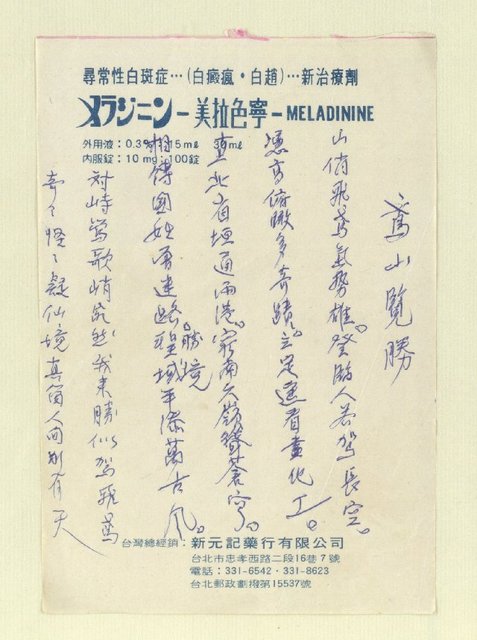 尋常性白斑症…(白癜瘋・白趙)…新治療劑
メラジニン－美拉色寧－MELADININE
外用液：0.3% 15ml 30ml
内服錠：10mg 100錠
鳶山覽勝
山俏飛鳶氣勢雄。登臨人若駕長空。
憑高俯瞰多奇蹟。立定遠看畫化工。
直北有垣通兩港。東南大嶺聳蒼穹。
相傳國姓勇迷路。勝境 聖域平添萬古風。
對峙鶯歌峭屹然 我來勝似駕飛鳶
奇々怪々疑仙境 真箇人间別有天
台灣總經銷：新元記藥行有限公司
台北市忠孝西路二段16巷7號
電話：331-6542・331-8623
台北郵政劃撥第15537號